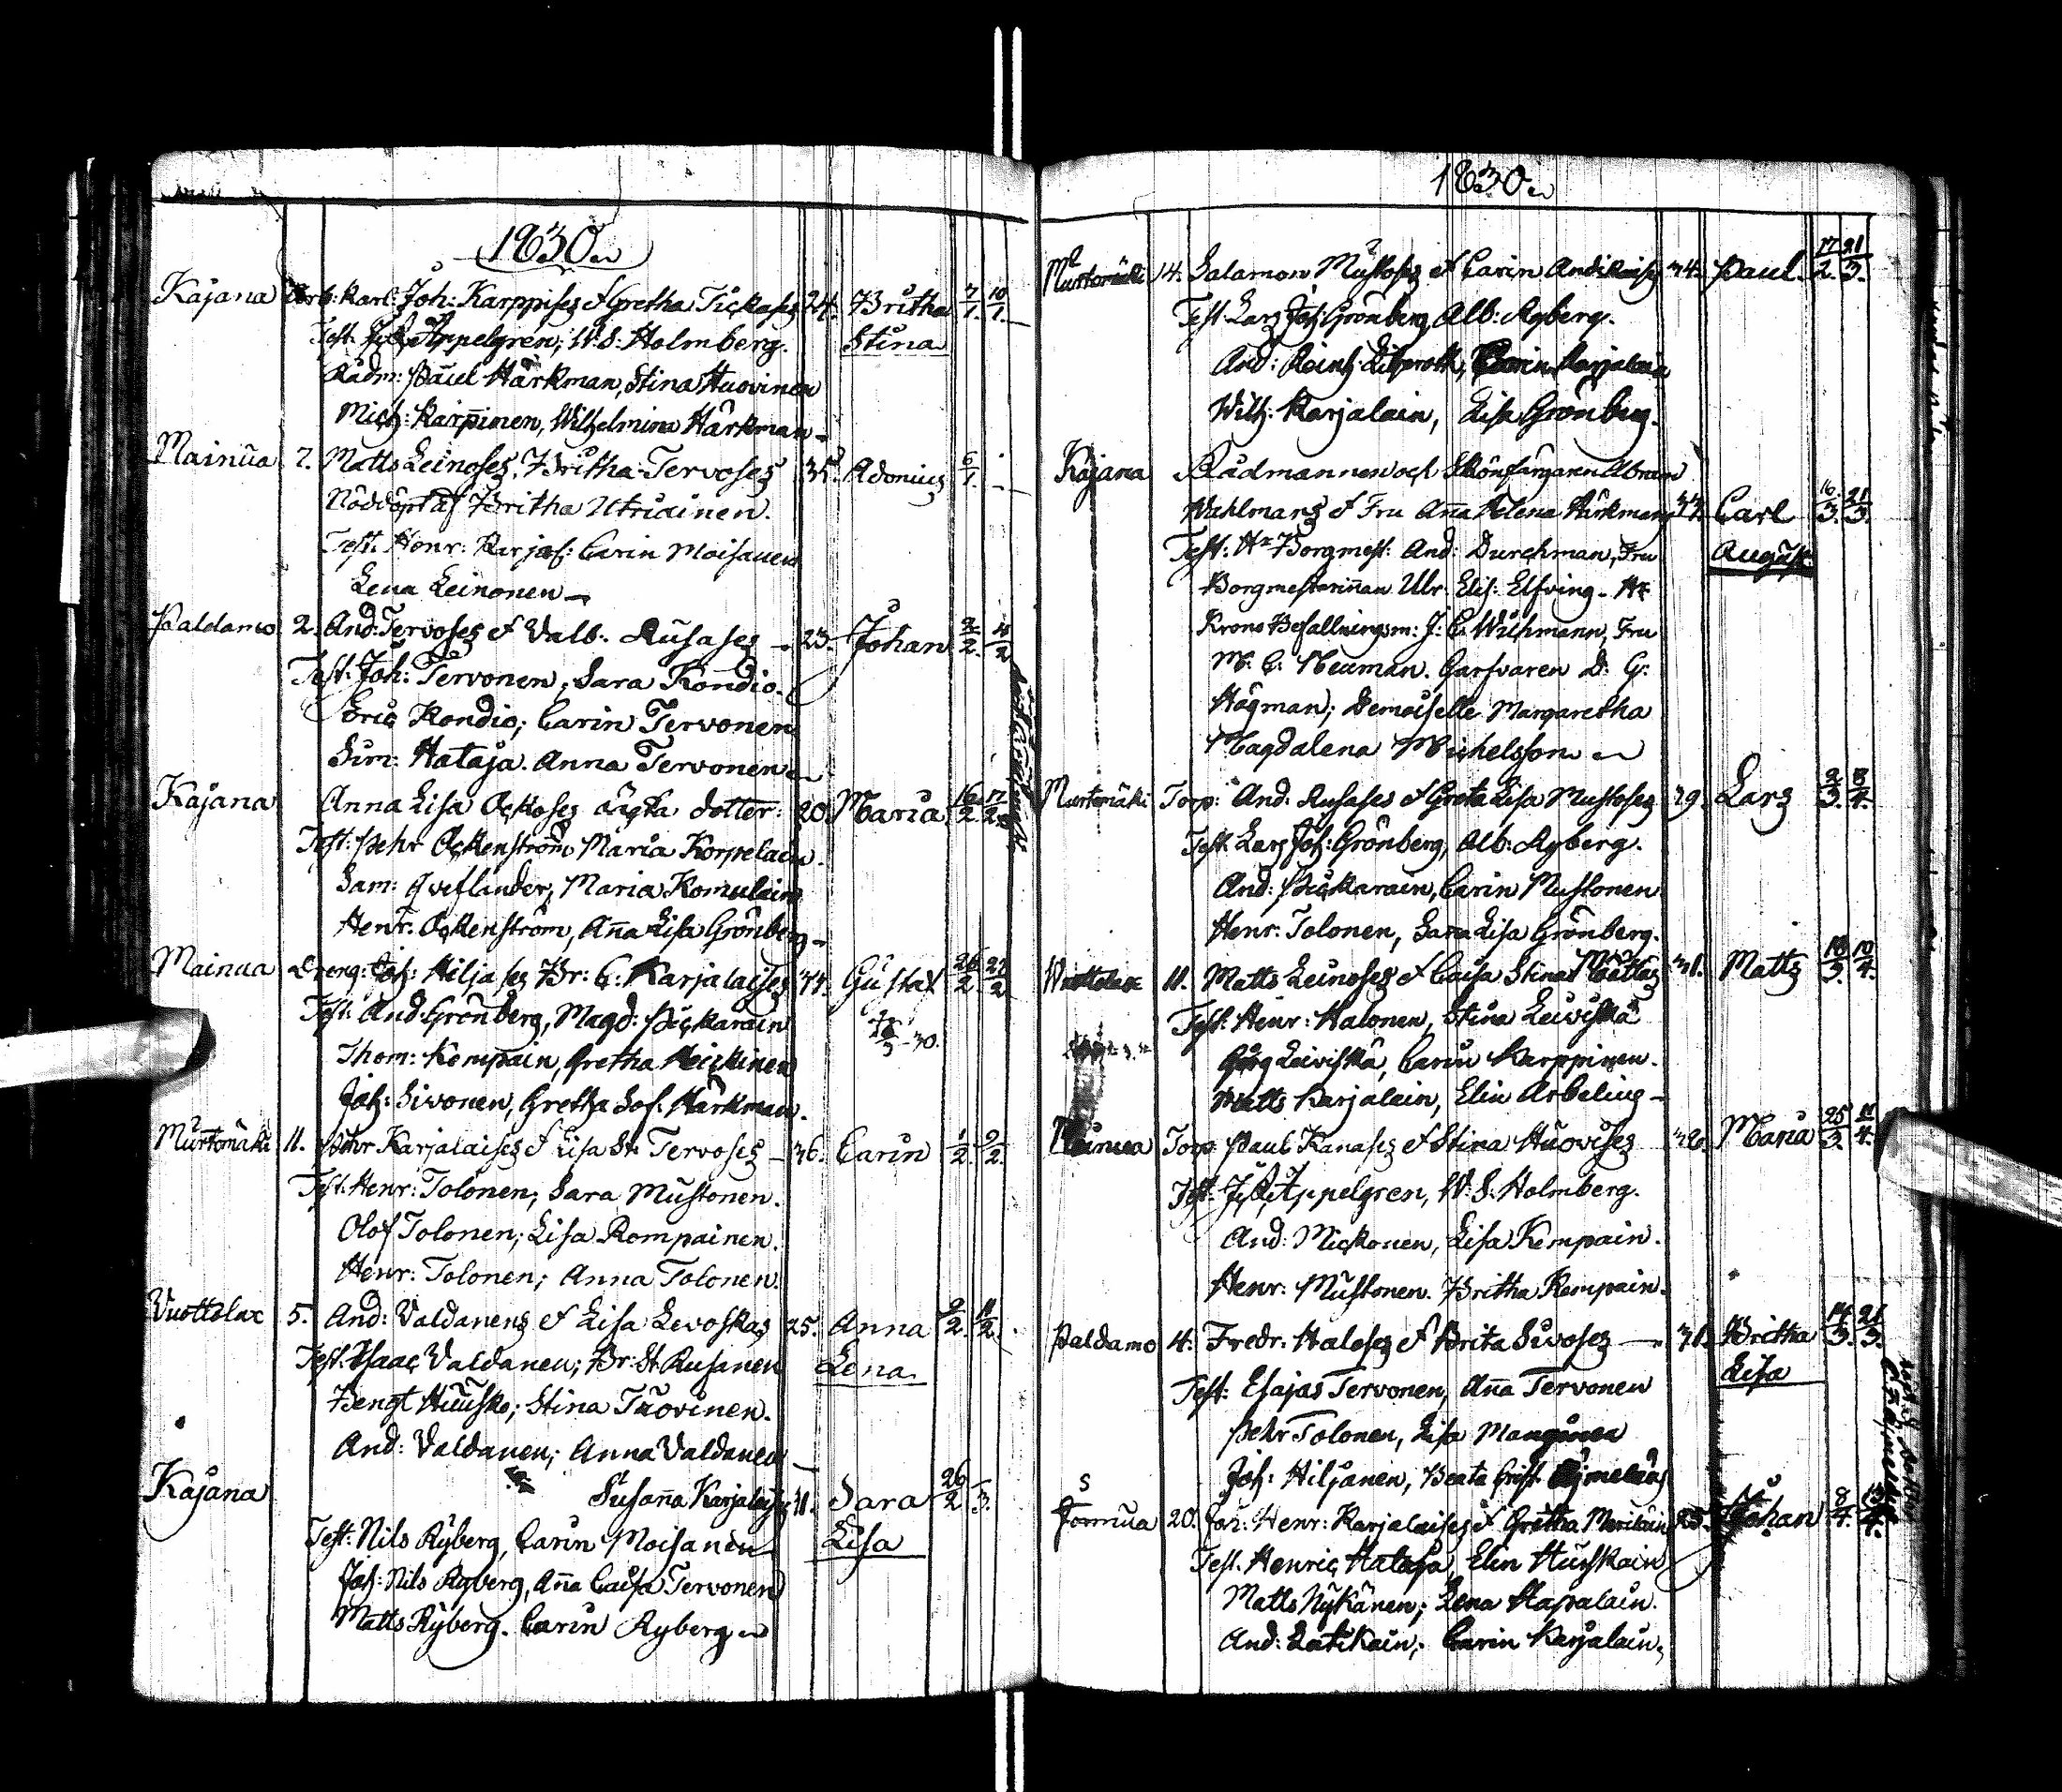 1830.
Kajana Arb: karl. Joh: Karppises & Gretha Tickases 24. Britha 7/1. 10/1.
Test. Appelgren, W. S. Holmberg. Stina
Rådm: Paul Härkman, Stina Huovinen
Mich: Karppinen, Wilhelmina Härkman
Mainua 7. Matts Leinoses, Britha Tervoses 35. Adonius 6/1.
Nöddöpt af Britha Utriainen.
Test. Henr: Karjal: Carin Moisanen
Lena Leinonen
Paldamo 2. And: Tervoses & Valb: Rusases 23. Johan 2/2. 4/2
Test. Joh: Tervonen, Sara Kondio.
Eric Kondio; Carin Tervonen
Sim: Hataja. Anna Tervonen
Kajana Anna Lisa Ockoses oägta dotter. 20. Maria 16/2. 17/2.
Test: Pehr Ockenström, Maria Korpelain.
Sam: Maria Komulain
Henr: Ockenström, Aña Lisa Grönberg
Mainua Dreng: Joh: Hiljases Br: C: Karjalaises 44. Gustaf 26/2. 27/2
Test: And: Grönberg, Magd: Pickarain
Thom: Kempain, Gretha Heickinen
Joh: Sivonen, Gretha Sof: Härkman.
Murtomäki 11. Pehr Karjalaises & Lisa St: Tervoses 36. Carin 1/2. 9/2.
Test. Henr: Tolonen; Sara Mustonen.
Olof Tolonen; Lisa Rompainen.
Henr: Tolonen; Anna Tolonen.
Vuottolax 5. And: Valdanens & Lisa Levoskas 25. Anna 9/2. 11/2.
Test. Isaac Valdanen; Br: St: Rusanen Lena
Bengt Huusko; Stina Tuovinen.
And: Valdanen; Anna Valdanen
Kajana Susaña Karjalaises 41. Sara 26/2
Test: Nils Ryberg, Carin Moisanen Lisa
Joh: Nils Ryberg, Aña Caisa Tervonen
Matts Ryberg. Carin Ryberg
1830.
Murtomäki 14. Salamon Mustoses & Carin 34. Paul. 17/2. 21/3.
Test. Lars Joh: Grönberg, Alb: Ryberg.
And: Reinh: Liljeroth, Carin Karjalain
Wilh: Karjalain, Lisa Grönberg.
Kajana Rådmannen och Skönfärgaren Abram
Wahlmans & Fru Aña Helena Härkmans 37. Carl 16/3. 21/3.
Test: Hr Borgmest: And: Durchman, Fru August.
Borgmestariñan Ulr: Elis: Elfving. Hr
Krono Befallningsm: J: C. Wichmann, Fru
M: C: Neuman. Garfvaren D: G:
Högman; Demoiselle Margaretha
Magdalena Michelsson
Murtomäki Torp: And: Rusases & Greta Lisa Mustoses 29. Lars 2/3. 8/4.
Test. Lars Joh: Grönberg, Alb: Ryberg.
And: Pickarain, Carin Mustonen
Henr: Tolonen, Sara Lisa Grönberg.
Wuottolax 11. Matts Leinoses & Caisa Stina 31. Matts 18/3. 10/4.
Test. Henr: Halonen, Stina Leiviskä
Leiviskä, Carin Karppinen.
Matts Karjalain, Elin Arbelius
Mainua Torp. Paul Kanases & Stina Huovises 32. Maria 25/3. 11/4.
Test: Appelgren, W: S: Holmberg.
And: Mickonen, Lisa Kempain.
Henr: Mustonen. Britha Kempain.
Paldamo 4. Fredr: Haloses & Brita Sivoses 31. Britha 14/3. 21/3.
Test: Esajas Tervonen, Aña Tervonen Lisa
Pehr Tolonen, Lisa Manginen
Joh: Hiljanen, Beata Crist.
Jormua 20. Joh: Henr: Karjalaises & Gretha 25. Johan 8/4.
Test. Henric Hataja, Elin Huuskain
Matts Nykänen; Lena Hapalain.
And: Latikain; Carin Karjalain,